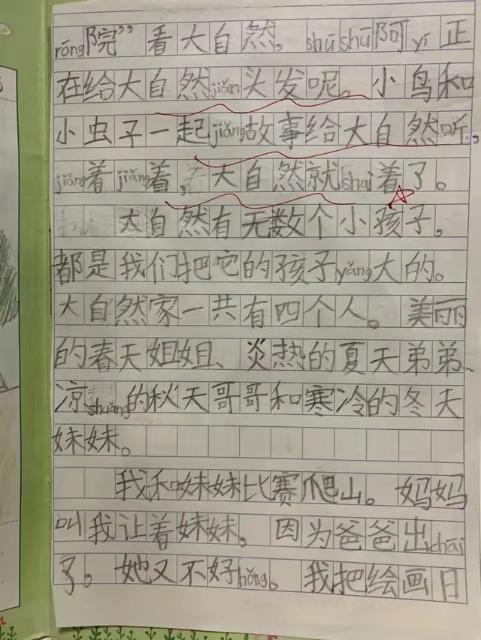 rōng院”看大自然，shūshū阿yí正
在给大自然jiǎn头发呢。小鸟和
小虫子一起jiǎng故事给大自然听，
jiǎng着jiǎng着，大自然就shuì着了。
大自然有无数个小孩子，
都是我们把它的孩子yǎng大的。
大自然家一共有四个人。美丽
的春天姐姐、炎热的夏天弟弟、
凉shuǎng的秋天哥哥和寒冷的冬天
妹妹。
我和妹妹比赛爬山。妈妈
叫我让着妹妹，因为爸爸出chāi
了。她又不好hǒng。我把绘画日